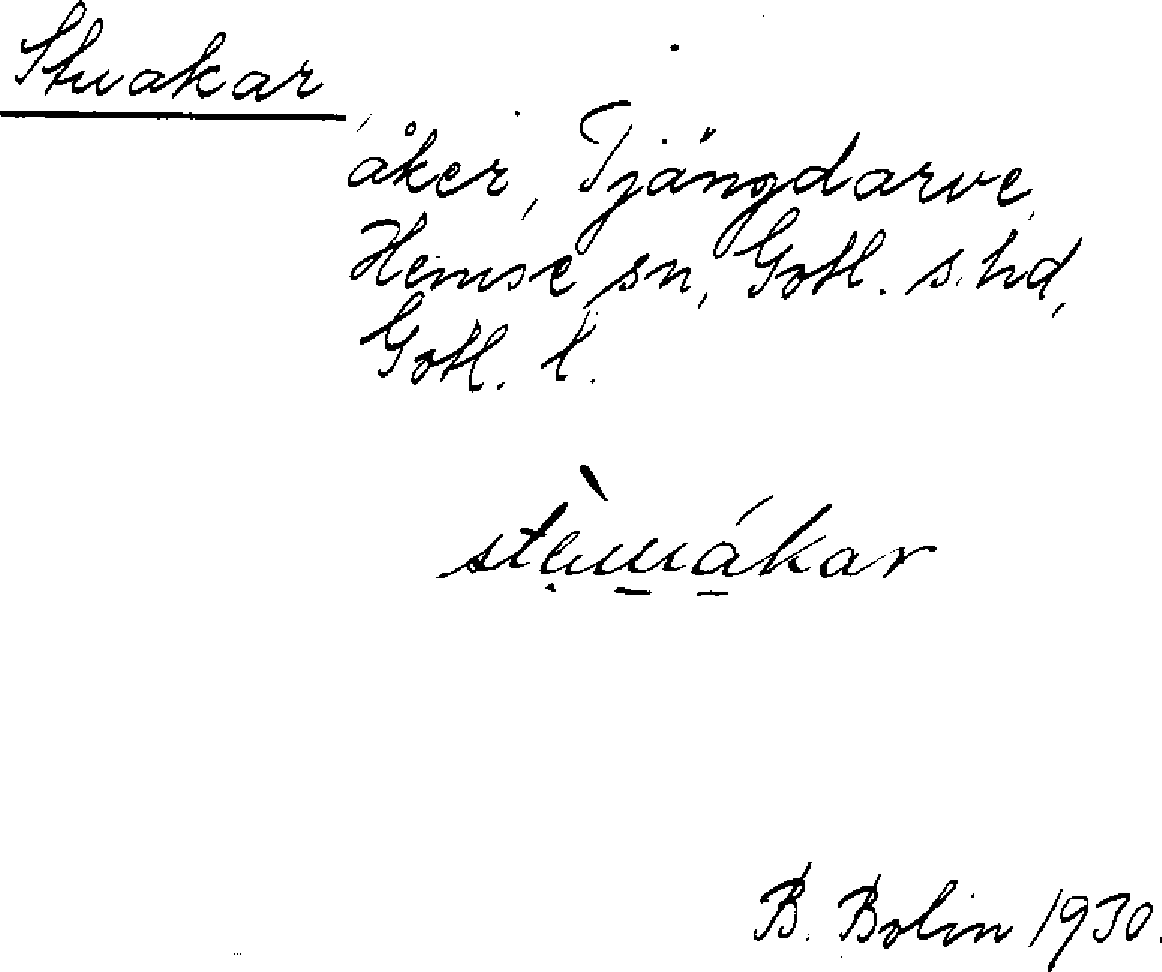 Stuakar
åker, Tjängdarve,
Hemse sn, Gotl. s. hd,
Gotl. l.
B. Bolin 1930.